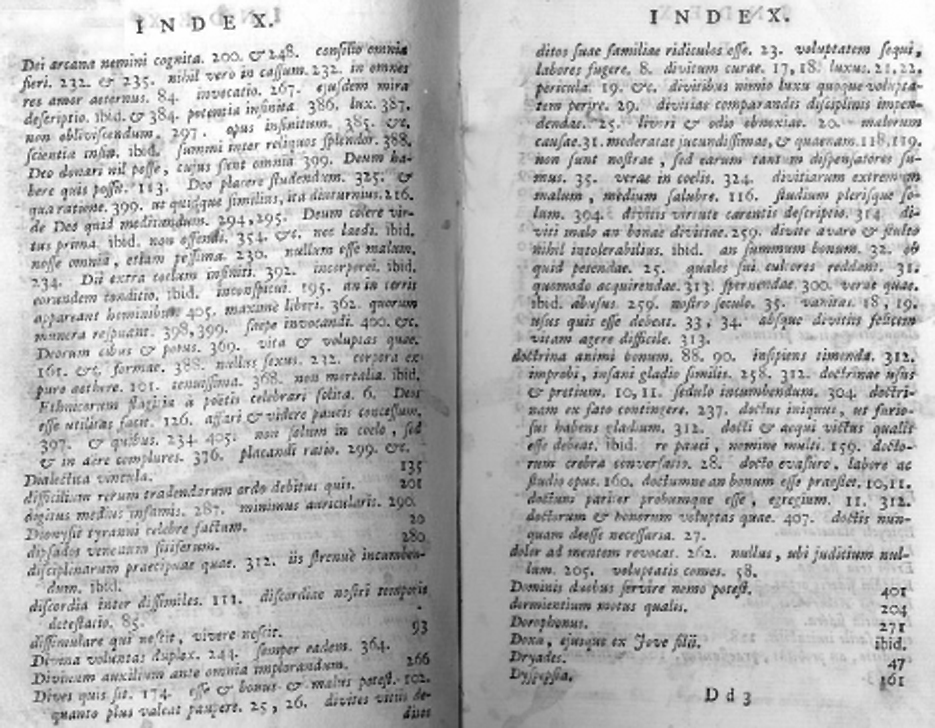 INDEX.
Dei arcana nemini cognita. 200. & 248. consilio omnia
fieri. 232. & 235. nihil vero in cassum. 232. in omnes
res amor aeternus. 84. invocatio. 267. ejusdem mira
descriptio. ibid. & 384. potentia infinita. 386. lux. 387.
non obliviscendum. 297. opus infinitum. 385. &c.
scientia infin. ibid. summi inter reliquos splendor. 388.
Deo donari nil posse, cujus sunt omnia 399. Deum ha-
bere quis possit. 113. Deo placere studendum. 325. &
qua ratione. 399. ut quisque similius, ita diuturnius. 216.
de Deo quid meditandum. 294, 295. Deum colere vir-
tus prima. ibid. non offendi. 354. &c. nec laedi. ibid.
nosse omnia, etiam pessima. 230. nullum esse malum.
234. Dii extra coelum infiniti. 392. incorporei. ibid.
eorundem conditio. ibid. inconspicui. 195. an in terris
appareant hominibus 405. maxime liberi. 362. quorum
munera respuant. 398, 399. saepe invocandi. 400. &c.
Deorum cibus & potus. 369. vita & voluptas quae.
161. &c. formae. 388. nullus sexus. 232. corpora ex
puro aethere. 101. tenuissima. 368. non mortalia. ibid.
Ethnicorum flagitia à poëtis celebrari solita. 6. Deos
esse utilitas facit. 126. affari & videre paucis concessum.
397. & quibus. 234 405. non solum in coelo, sed
& in aëre complures. 376. placandi ratio. 299. &c.
Dialectica vincula. 135
difficilium rerum tradendarum ordo debitus quis. 201
digitus medius infamis. 287. minimus auricularis. 290.
Dionysii tyranni celebre factum. 20
dipsados venenum sitiferum. 280
disciplinarum praecipuae quae. 312. iis strenuè incumben-
dum. ibid.
discordia inter dissimiles. 111. discordiae nostri temporis
detestatio. 85.
dissimulare qui nescit, vivere nescit. 93
Divina voluntas duplex. 244. semper eadem. 364.
Divinum auxilium ante omnia implorandum. 266
Dives quis sit. 174. esse & bonus & malus potest. 102.
quanto plus valeat paupere. 25, 26. divites vitiis de-
ditos
INDEX.
ditos suae familiae ridiculos esse. 23. voluptatem sequi,
labores fugere. 8. divitum curae. 17, 18. luxus. 21, 22.
pericula. 19. &c. divitibus nimio luxu quoque volupta-
tem perire. 29. divitiae comparandis disciplinis impen-
dendae. 25. livori & odio obnoxiae. 20. malorum
causae. 31. moderatae jucundissimae, & quaenam. 118, 119.
non sunt nostrae, sed earum tantum dispensatores su-
mus. 35. verae in coelis. 324. divitiarum extremum
malum, medium salubre. 116. studium plerisque so-
lum. 394. divitis virtute carentis descriptio. 314. di-
viti malo an bonae divitiae. 259. divite avaro & stulto
nihil intolerabilius. ibid. an summum bonum. 32. ob
quid petendae. 25. quales sui cultores reddant. 31.
quomodo acquirendae. 313. spernendae. 300. verae quae.
ibid. abusus. 259. nostro seculo. 35. vanitas. 18, 19.
usus quis esse debeat. 33, 34. absque divitiis felicem
vitam agere difficile. 313.
doctrina animi bonum. 88. 90. insipiens timenda. 312.
improbi, insani gladio similis. 258. 312. doctrinae usus
& pretium. 10, 11. sedulo incumbendum. 304. doctri-
nam ex fato contingere. 237. doctus iniquus, ut furio-
sus habens gladium. 312. docti & aequi victus qualis
esse debeat. ibid. re pauci, nomine multi. 159. docto-
rum crebra conversatio. 28. docto evasuro, labore ac
studio opus. 160. doctumne an bonum esse praestet. 10, 11.
doctum pariter probumque esse, egregium. 11. 312.
doctorum & bonorum voluptas quae. 407. doctis nun-
quam deesse necessaria. 27.
dolor ad mentem revocat. 262. nullus, ubi judicium nul-
lum. 205. voluptatis comes. 58.
Dominis duobus servire nemo potest. 401
dormientium motus qualis. 204
Dorophonus. 271
Doxa, ejusque ex Jove filii. ibid.
Dryades. 47
Dyspepsia. 161
Dd 3